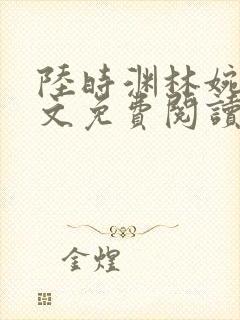 陸時渊林婉
文免費閱讀
金煌